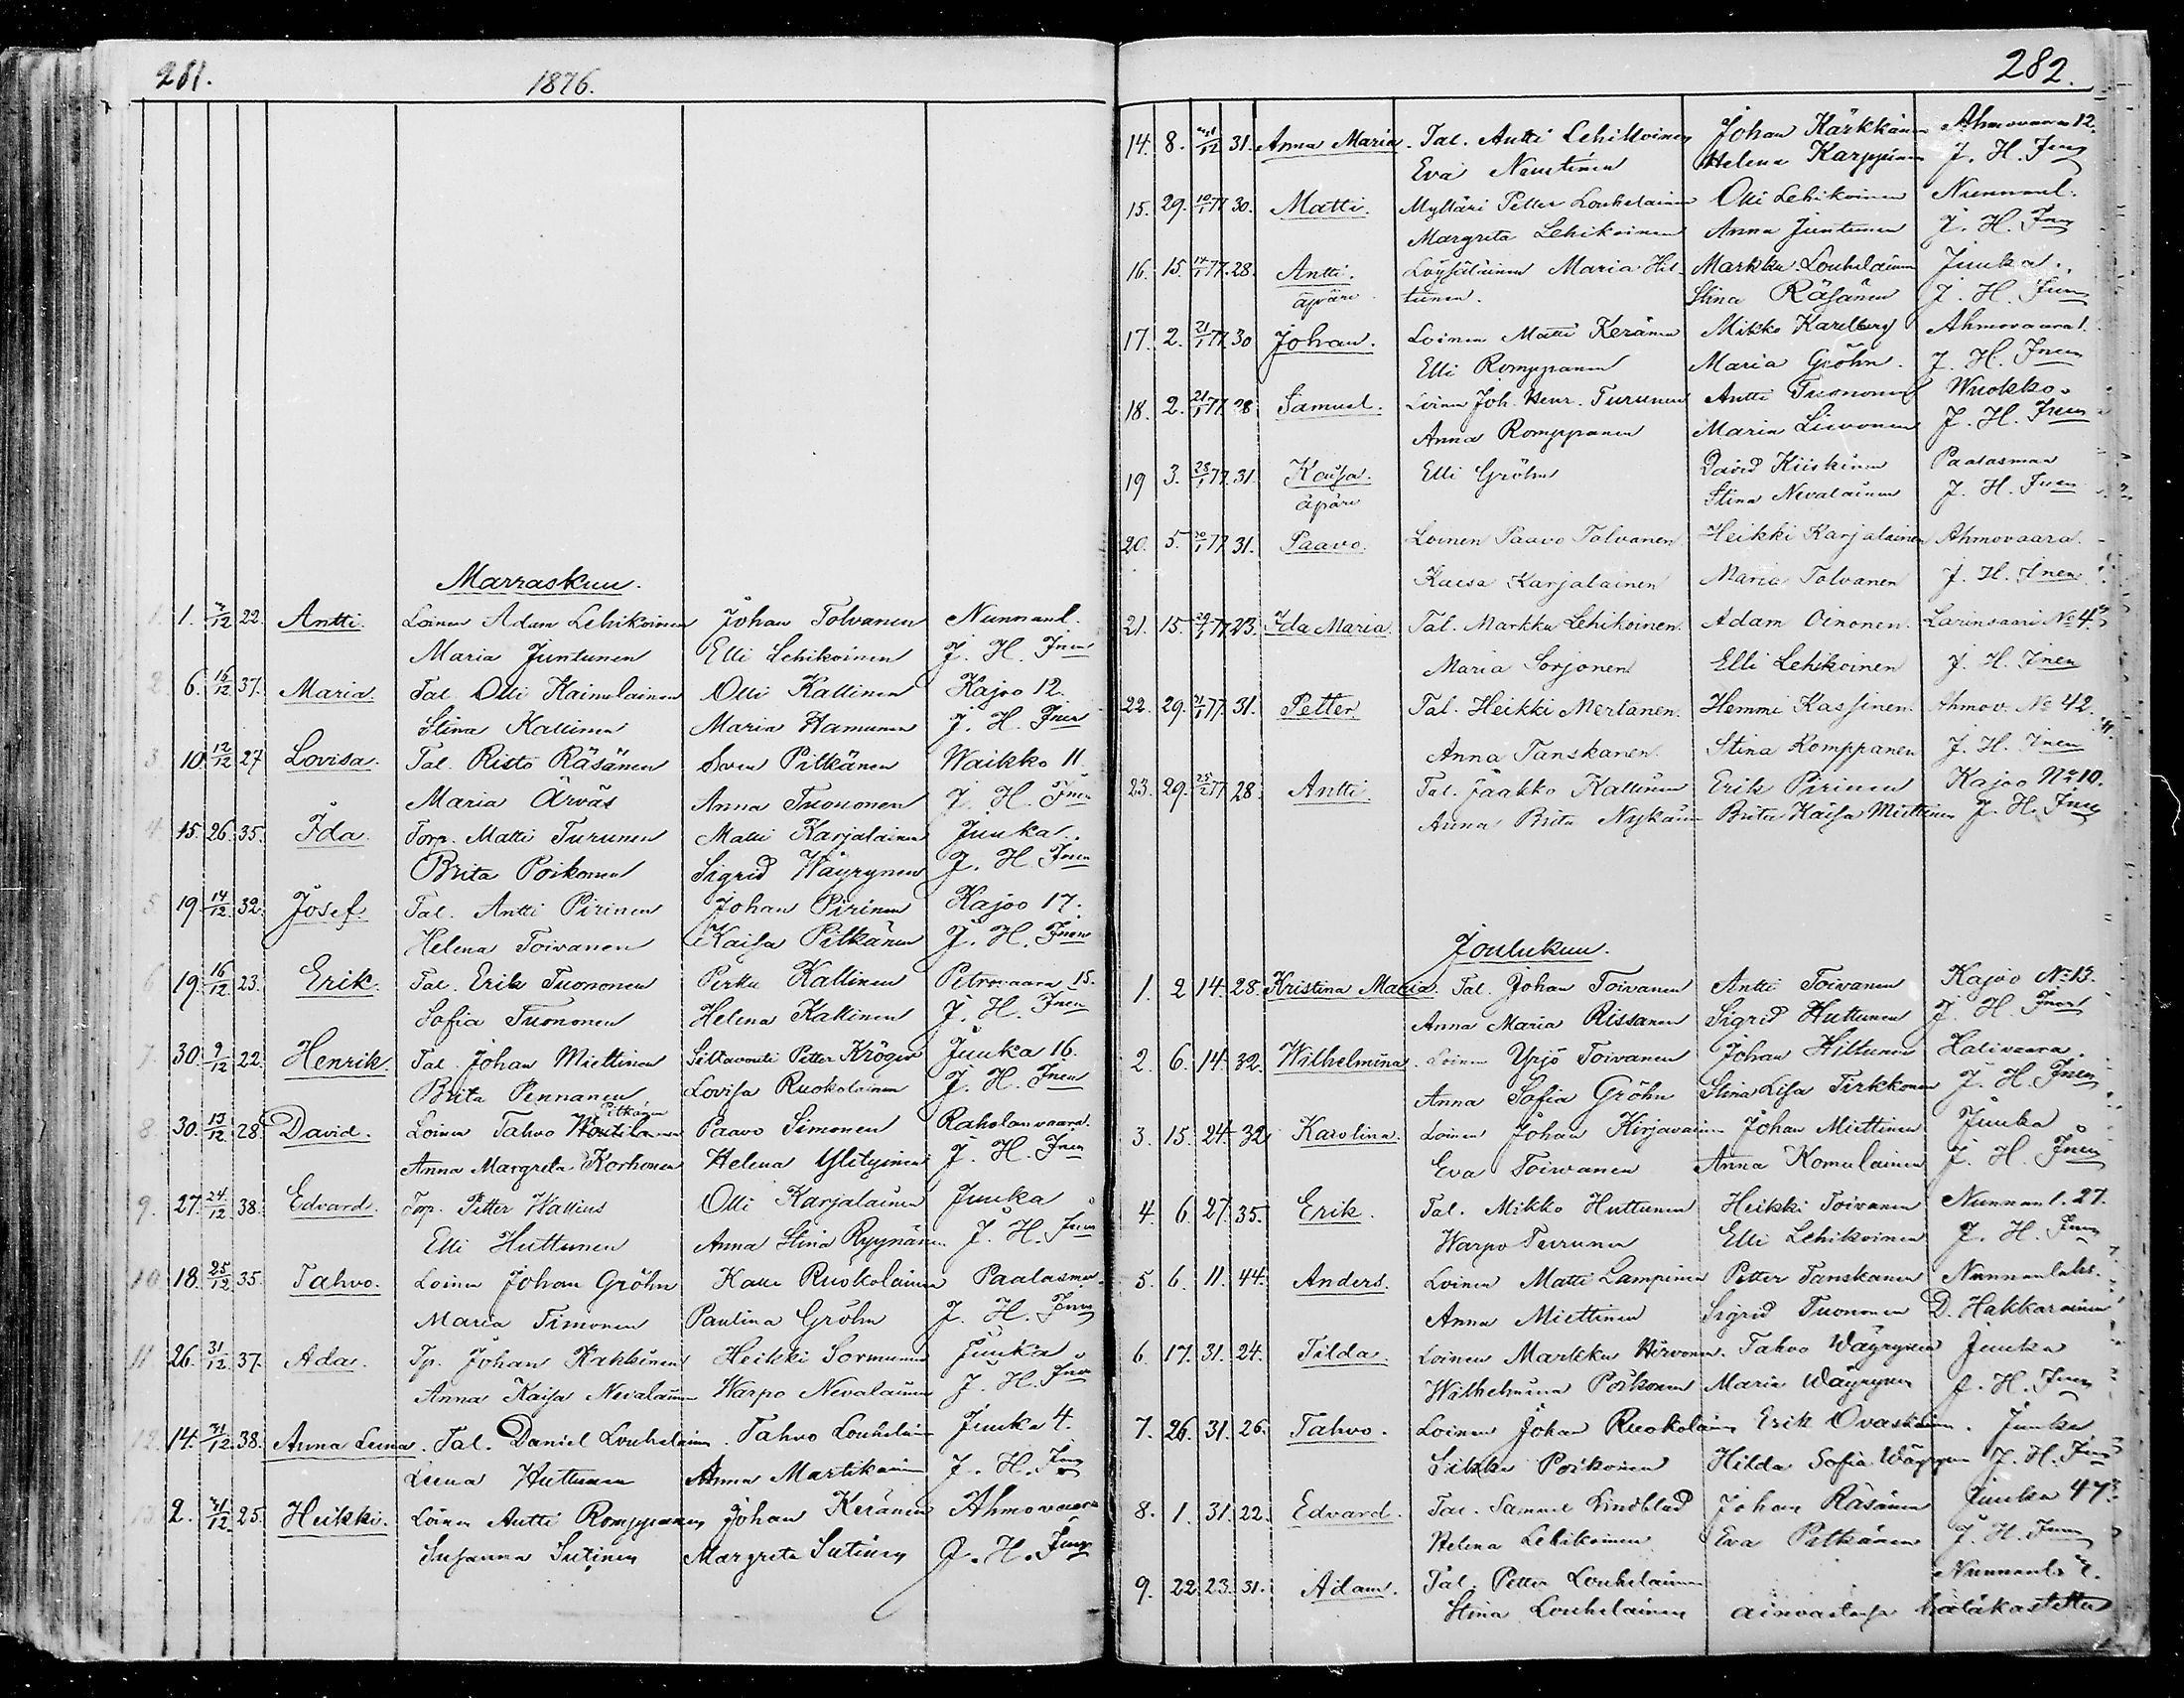 281.
1876.
Marraskuu.
1. 1. 3/12 22. Antti. Loinen Adam Lehikoinen Johan Tolvanen Nunnanl.
Maria Juntunen Elli Lehikoinen J. H. Inen
2. 6. 16/12 37. Maria. Tal. Olli Kaimulainen Olli Kallinen Kajoo 12.
Stina Kallinen Maria Hamunen J. H. Inen
3. 10. 12/12 27 Lovisa. Tal. Risto Räsänen Sven Pitkänen Waikko 11.
Maria Ärväs Anna Tuononen J. H. Inen
4. 15. 26. 35. Ida. Torp. Matti Turunen Matti Karjalainen Juuka.
Brita Poikonen Sigrid Wäyrynen J. H. Inen
5. 19. 14/12 32. Josef. Tal. Antti Pirinen Johan Pirinen Kajoo 17.
Helena Toivanen Kaisa Pitkänen J. H. Inen
6. 19. 16/12 23. Erik. Tal. Erik Tuononen Pekka Kallinen Petrovaara 15.
Sofia Tuononen Helena Kallinen J. H. Inen
7. 30. 9/12 22. Henrik. Tal. Johan Miettinen Siltavouti Petter Kröger Juuka 16.
Brita Pennanen Lovisa Ruokolainen J. H. Inen
Pitkänen
8. 30. 13/12 28. David. Loinen Tahvo Paavo Simonen Raholanvaara.
Anna Margreta Korhonen Helena Ylityinen J. H. Inen
9. 27. 24/12 38. Edvard. Torp. Petter Wallius Olli Karjalainen Juuka
Elli Huttunen Anna Stina Ryynänen J. H. Inen
10. 18. 25/12 35. Tahvo. Loinen Johan Gröhn Kalle Ruokolainen Paalasmaa
Maria Timonen Paulina Gröhn J. H. Inen
11. 26. 31/12 37. Ada. Tp. Johan Kakkinen Heikki Sormunen Juuka
Anna Kaisa Nevalainen Warpo Nevalainen J. H. Inen
12. 14. 31/12 38. Anna Leena. Tal. Daniel Louhelainen Tahvo Louhelain Juuka 4.
Leena Huttunen Anna Martikain J. H. Inen
13. 2. 31/12 25. Heikki. Loinen Antti Romppanen Johan Keränen Ahmovaara
Susanna Sutinen Margreta Sutinen J. H. Inen
282.
14. 8. 31/12 31. Anna Maria. Tal. Antti Lehikoinen Johan Kärkkäinen Ahmovaara 12.
Eva Nevutinen Helena Karppinen J. H. Inen
15. 29. 10/1 77 30. Matti. Mylläri Petter Louhelainen Olli Lehikoinen Nunnanl.
Margreta Lehikoinen Anna Juntunen J. H. Inen
16. 15. 14/1 77. 28. Antti. Löysäläinen Maria Hil- Markku Louhelainen Juuka.
äpäre. tunen. Stina Räsänen J. H. Inen
17. 2. 21/1 77. 30 Johan. Loinen Matti Keränen Mikko Karelberg Ahmovaara 1.
Elli Romppanen Maria Gröhn. J. H. Inen
18. 2. 21/1 77. 28 Samuel. Loinen Joh. Henr. Turunen Antti Tuononen Wuokko.
Anna Romppanen Maria Liuvonen J. H. Inen
19 3. 28/1 77. 31. Kaisa. Elli Gröhn David Kiiskinen Paalasmaa
äpäre Stina Nevalainen J. H. Inen
20. 5. 30/1 77 31. Paavo. Loinen Paavo Tolvanen Heikki Karjalainen Ahmovaara.
Kaisa Karjalainen Maria Tolvanen J. H. Inen
21. 15. 77. 23. Ida Maria. Tal. Markku Lehikoinen. Adam Oinonen. Larinsaari No 4.
Maria Sorjonen Elli Lehikoinen J. H. Inen
22. 29. 77. 31. Petter. Tal. Heikki Mertanen. Hemmi Kassinen. Ahmov. No 42.
Anna Tanskanen. Stina Romppanen J. H. Inen
23. 29. 25/2 77 28. Antti. Tal. Jaakko Kallinen Erik Pirinen Kajoo No 10.
Anna Brita Nykän Brita Kaisa Miettinen J. H. Inen
Joulukuu.
1. 2 14. 28. Kristina Maria. Tal. Johan Toivanen Antti Toivanen Kajoo No 13.
Anna Maria Rissanen Sigrid Huttunen J. H. Inen
2. 6. 14. 32. Wilhelmina. Loinen Yrjö Toivanen Johan Hiltunen Halivaara.
Anna Sofia Gröhn Stina Lisa Tirkkonen J. H. Inen
3. 15. 24. 32. Karolina. Loinen Johan Kirjavainen Johan Miettinen Juuka
Eva Toivanen Anna Komulainen J. H. Inen
4. 6. 27. 35. Erik. Tal. Mikko Huttunen Heikki Toivanen Nunnanl. 27.
Warpo Turunen Elli Lehikoinen J. H. Inen
5. 6. 11. 44. Anders. Loinen Matti Lampinen Petter Tanskanen Nunnanlaks.
Anna Miettinen Sigrid Tuononen D. Hakkarainen
6. 17. 31. 24. Tilda. Loinen Markku Hirvonen. Tahvo Wäyrynen Juuka
Wilhelmina Poikonen Maria Wäyrynen J. H. Inen
7. 26. 31. 26. Tahvo. Loinen Johan Ruokolain Erik Ovaskain. Juuka
Silkka Poikonen Hilda Sofia Wäyrynen J. H. Inen
8. 1. 31. 22. Edvard. Tal. Samuel Lindblad Johan Räsänen Juuka 47.
Helena Lehikoinen Eva Pitkänen J. H. Inen
9. 22. 23. 31. Adam. Tal. Petter Louhelainen Nunnanl.
Stina Louhelainen ainoastansa hätäkastettu